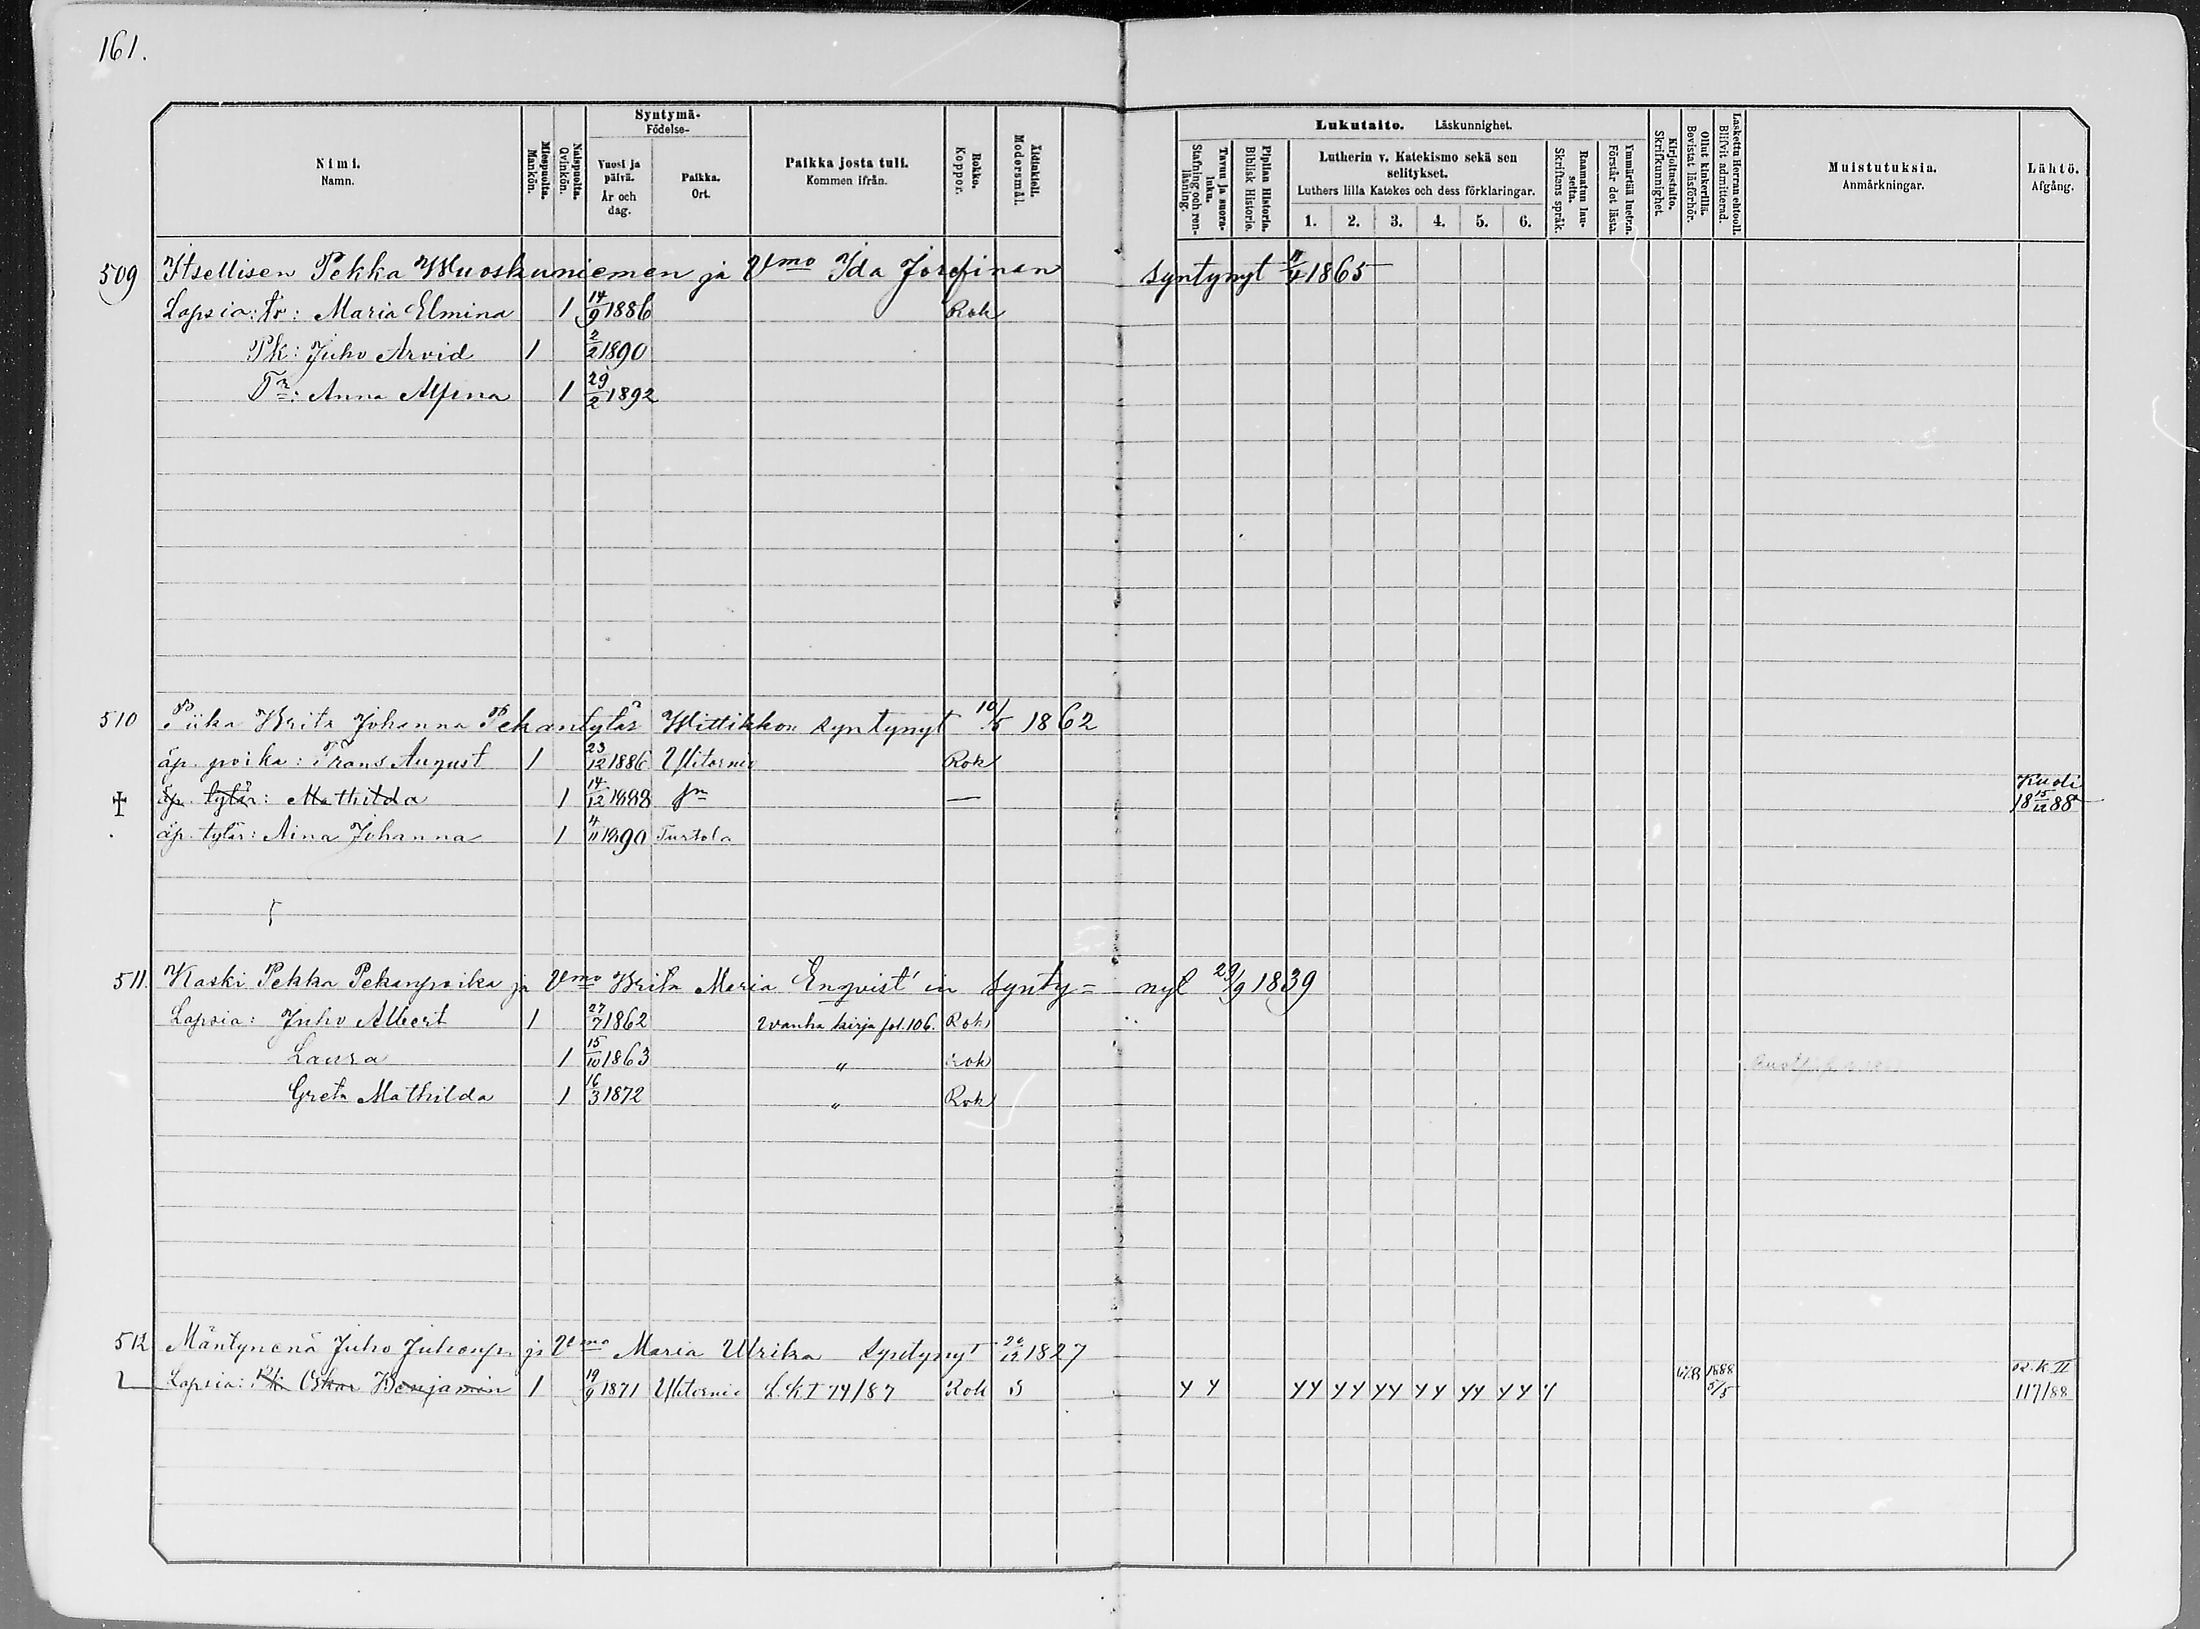 161.
Nimi.
Namn.
Miespuolta.
Mankön.
Naispuolta.
Qvinkön.
Syntymä-
Födelse-
Vuosi ja päivä.
År och dag.
Paikka.
Ort.
Paikka josta tuli.
Kommen ifrån.
Rokko.
Koppor.
Äidinkieli.
Modersmål.
Lukutaito. Läskunnighet.
Tavuu ja suora- luku.
Stafning och ren- läsning.
Piplian Historia.
Biblisk Historie.
Lutherin v. Katekismo sekä sen selitykset.
Luthers lilla Katekes och dess förklaringar.
1. 2. 3. 4. 5. 6.
Raamatun lau- seita.
Skriftens språk.
Ymmärtää luetun.
Förstår det lästa.
Kirjoitustaito.
Skrifkunnighet.
Ollut kinkerillä.
Bevistat läsförhör.
Laskettu Herran ehtooll.
Blifvit admitterad.
Muistutuksia.
Anmärkningar.
Lähtö.
Afgång.
509 Itsellisen Pekka Wuoskuniemen ja Vmo Ida Josefinan syntynyt 11/4 1865
Lapsia: tr: Maria Elmina 1 14/9 1886 Rok
Pk: Juho Arvid 1 2/2 1890
Tr: Anna Alfina 1 29/2 1892
510 Piika Brita Johanna Pekantytär Wittikkon syntynyt 10/5 1862
äp. poika: Frans August 1 23/12 1886 Ylitornio Rok
äp. tytär: Mathilda 1 14/12 1888 sm — Kuoli 18 15/12 88
äp. tytär: Aina Johanna 1 4/11 1890 Turtola
511. Kaski Pekka Pekanpoika ja Vmo Brita Maria Enqvist'in synty= nyt 29/9 1839
Lapsia: Juho Albert 1 27/7 1862 wanha kirja fol. 106. Rok
Laura 1 15/10 1863 " rok
Greta Mathilda 1 16/3 1872 " Rok
512 Mäntynenä Juho Juhonp. ja Vmo Maria Ulrika syntynyt 26/12 1827
Lapsia: Pk: Oskar Benjamin 1 19/9 1871 Ylitornio L.K I 74/87 Rok S 1888 5/5 R.K II 117/88